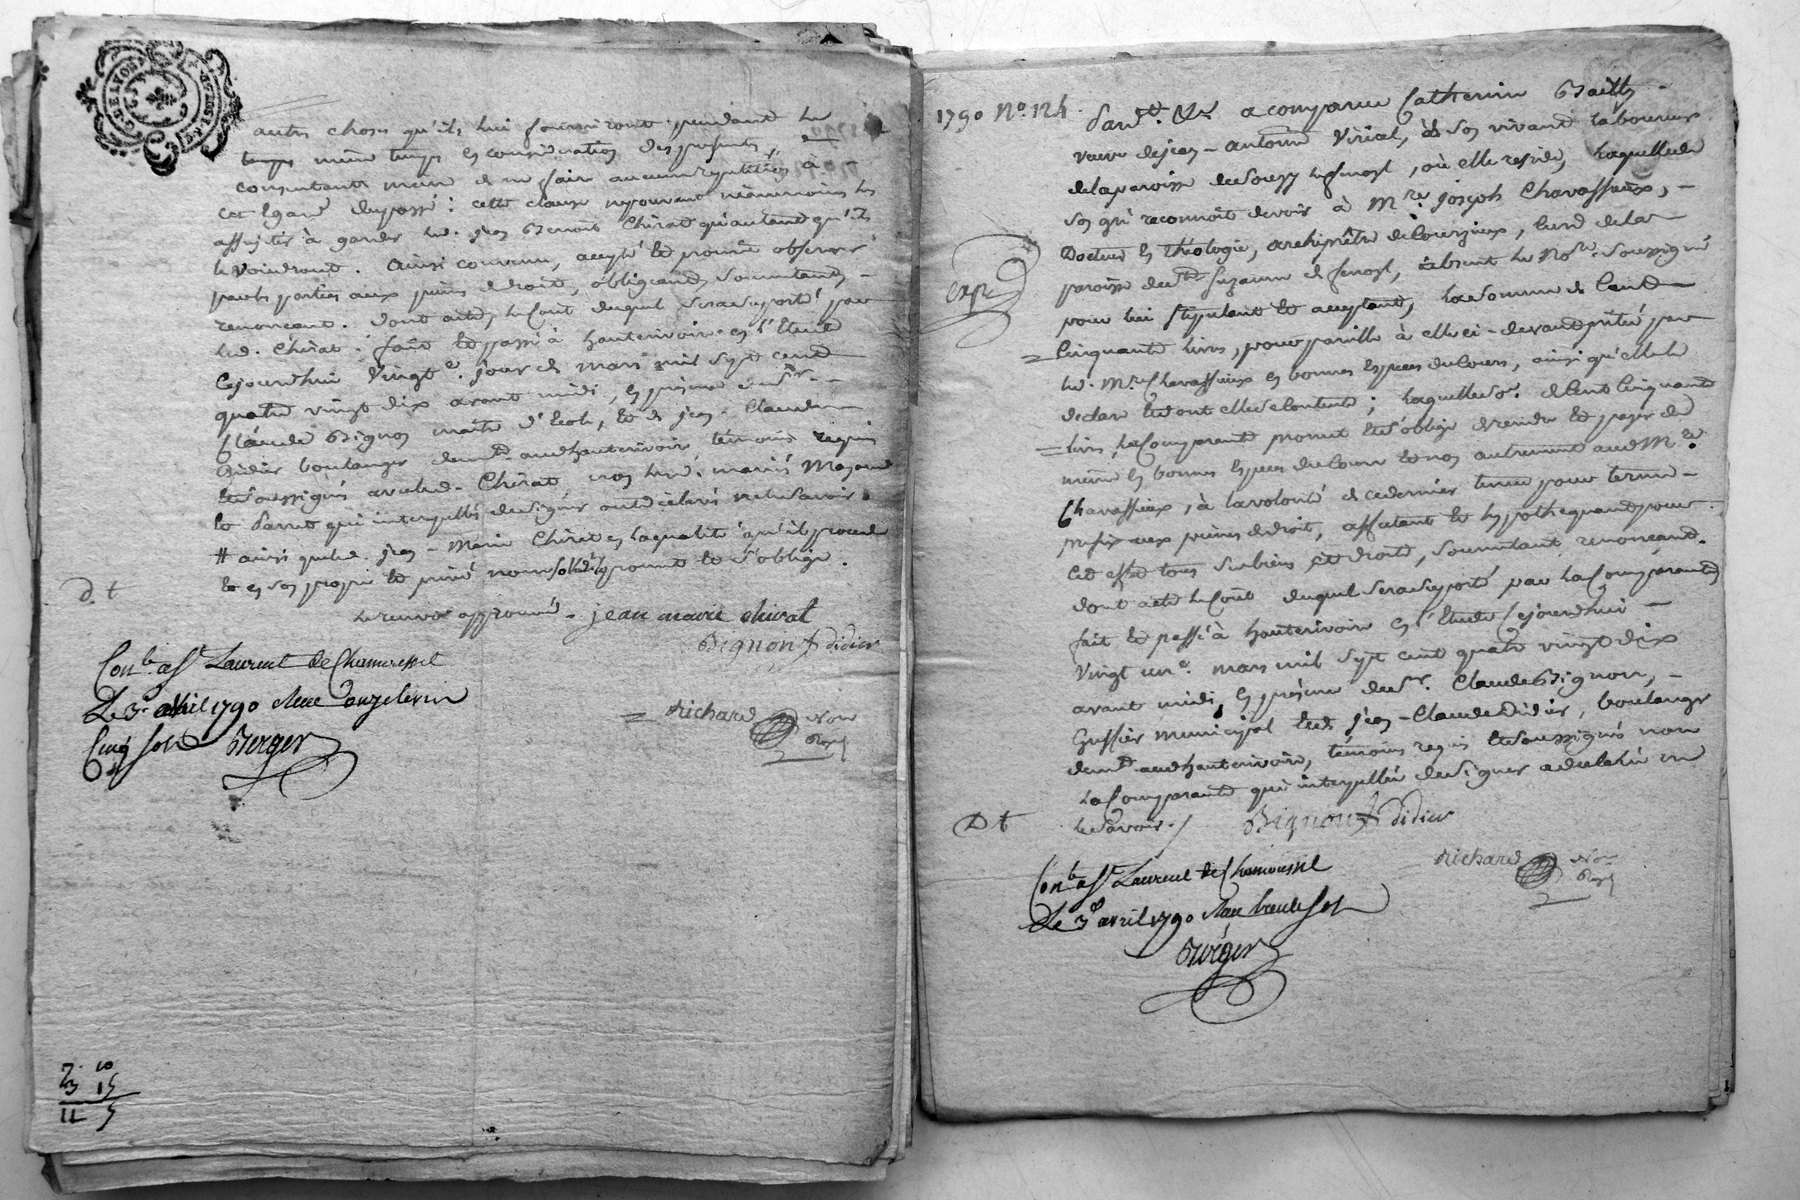 autres choses qu'ils lui fourniront pendant le
temps même temps en considération des présentes, se
consentants même de ne faire aucune répétition à
cet égard du passé : cette clause ne pouvant néanmoins les
assujetir à garder led. jean Benoit Chirat qu'autant qu'ils
le voudront. Ainsi convenu, accepté et promis observer
par les parties aux peines de droit, obligeants, soumettants,
renonceant. Dont acte, le Cout duquel sera suporté par
led. Chirat. fait et passé à hauterivoire en l'Etude
Cejourdhui Vingt e. jour de mars mil sept cent
quatre vingt dix avant midi, en présence du Sr.
Claude Bignon maître d'Ecole, et de jean-Claude
Didier boulanger dem.t aud. hauterivoire témoins requis
et soussignés avec led. Chirat non led. mariés
et qui interpellés de signer ont déclaré ne le savoir
# ainsi que led. jean-Marie Chirat en la qualité qu'il procede
et en son propre et privé nom solid.t promet et s'oblige.
D. t
le renvoi approuvé - jean marie chirat
Bignon Didier
Con.le a St Laurent de Chamousset
Le 3e avril 1790
Cinq sols Berger
Richard No.re Royal
7 10
3 15
11 5
1790 No. 124.
Pard.t &a a comparu Catherine
veuve de jean-antoine Virial, de son vivant laboureur
de la paroisse de Souzy , où elle reside, laquelle de
son gré reconnoit devoir à M.re joseph Chavassieux,
Docteur en théologie, archiprêtre de Courzieux, Curé de la
paroisse de Ste Suzanne de , absent le No.re Soussigné
expé
pour lui stipulant et acceptant, la somme de Cent
Cinquante livres, pour pareille à elle ci-devant prêtée par
led. M.re Chavassieux en bonnes Especes du Cours, ainsi qu'elle le
declare et dont elle se Contente ; laquelle so.e de Cent Cinquante
livres, la Comparante promet et s'oblige de rendre et payer de
même en bonnes Especes du Cours et non autrement aud. M.re
Chavassieux, à la volonté de ce dernier tenue pour terme
prefix aux peines de droit, affectant et hypothequant pour
Cet effet tous ses biens et droits, soumettant, renonceant.
Dont acte le Coût duquel sera suporté par la Comparante
fait et passé à hauterivoire en l'Etude Cejourdhui
Vingt un e. mars mil sept cent quatre vingt dix
avant midi, en présence du Sr. Claude Bignon,
Greffier municipal et de jean-Claude Didier, boulanger
dem.t aud. hauterivoire, témoins requis et soussignés non
la Comparante qui interpellée de signer a déclaré ne
le savoir.
D t
Bignon Didier
Richard No.re Royal
Con.le a St Laurent de Chamousset
Le 3e avril 1790 Reçu trente sols
Berger